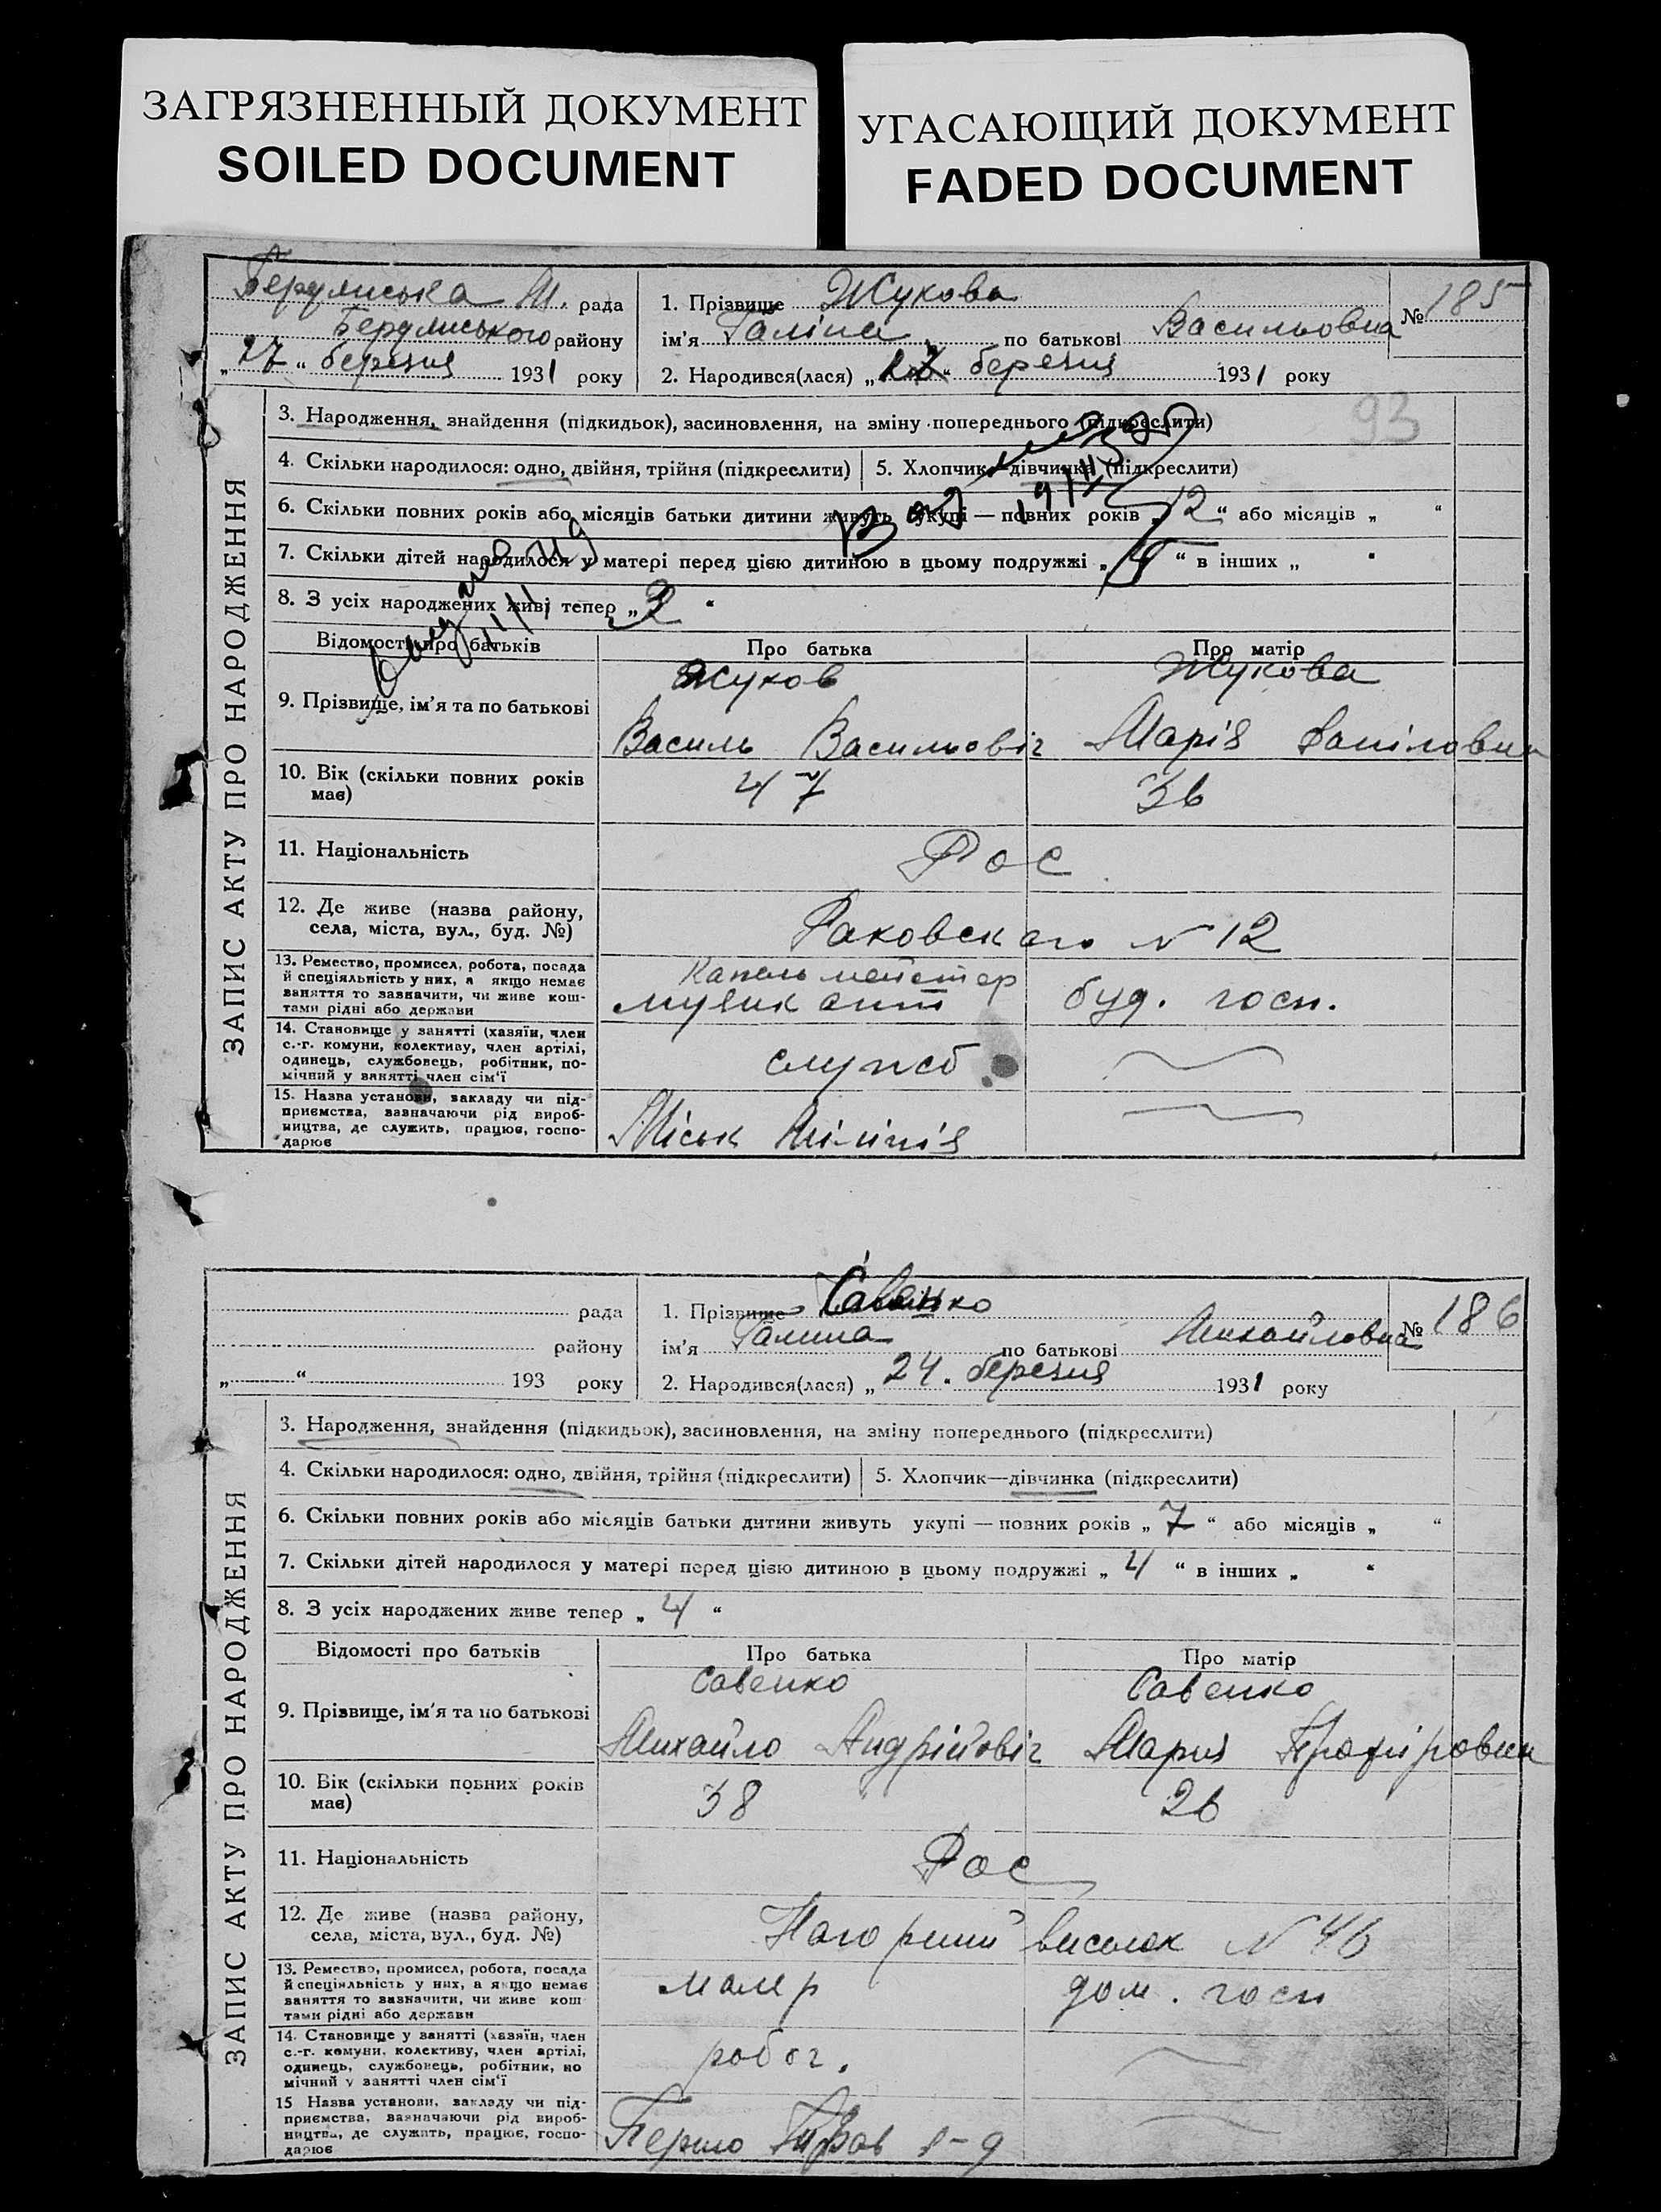 ЗАГРЯЗНЕННЫЙ ДОКУМЕНТ
SOILED DOCUMENT
УГАСАЮЩИЙ ДОКУМЕНТ
FADED DOCUMENT
ЗАПИС АКТУ ПРО НАРОДЖЕННЯ
М. рада
району
„27“ березня 1931 року
1. Прізвище Жукова
ім'я Галіна по батькові Васильовна
№ 185
2. Народився(лася) „ “ березня 1931 року
93
3. Народження, знайдення (підкидьок), засиновлення, на зміну попереднього (підкреслити)
4. Скільки народилося: одно, двійня, трійня (підкреслити)
5. Хлопчик—дівчинка (підкреслити)
6. Скільки повних років або місяців батьки дитини живуть укупі — повних років „12“ або місяців „ “
7. Скільки дітей народилося у матері перед цією дитиною в цьому подружжі „ “ в інших „ “
8. З усіх народжених живі тепер „2“
Відомості про батьків
Про батька
Про матір
9. Прізвище, ім'я та по батькові
Жуков
Василь Васильовіч
Жукова
Марія Даніловна
10. Вік (скільки повних років має)
47
36
11. Національність
Рос
12. Де живе (назва району,
села, міста, вул., буд. №)
Раковского N 12
13. Ремество, промисел, робота, посада
й спеціяльність у них, а якщо немає
заняття то зазначити, чи живе кош-
тами рідні або держави
Капельмейстер
музикант
буд. госп.
14. Становище у занятті (хазяїн, член
с.-г. комуни, колективу, член артілі,
одинець, службовець, робітник, по-
мічний у занятті член сім'ї
служб
15. Назва установи, закладу чи під-
приємства, зазначаючи рід вироб-
ництва, де служить, працює, госпо-
дарює
Міськ Міліція
ЗАПИС АКТУ ПРО НАРОДЖЕННЯ
рада
району
„ “ 193 року
1. Прізвище Савенко
ім'я Галина по батькові Михайловна
№ 186
2. Народився(лася) „24“ березня 1931 року
3. Народження, знайдення (підкидьок), засиновлення, на зміну попереднього (підкреслити)
4. Скільки народилося: одно, двійня, трійня (підкреслити)
5. Хлопчик—дівчинка (підкреслити)
6. Скільки повних років або місяців батьки дитини живуть укупі — повних років „7“ або місяців „ “
7. Скільки дітей народилося у матері перед цією дитиною в цьому подружжі „4“ в інших „ “
8. З усіх народжених живе тепер „4“
Відомості про батьків
Про батька
Про матір
9. Прізвище, ім'я та по батькові
Савенко
Михайло Андрійовіч
Савенко
Мария
10. Вік (скільки повних років має)
38
26
11. Національність
Рос
12. Де живе (назва району,
села, міста, вул., буд. №)
Нагорний виселок N 46
13. Ремество, промисел, робота, посада
й спеціяльність у них, а якщо немає
заняття то зазначити, чи живе кош
тами рідні або держави
маляр
дом. госп
14. Становище у занятті (хазяїн, член
с.-г. комуни, колективу, член артілі,
одинець, службовець, робітник, по
мічний у занятті член сім'ї
робоч.
15 Назва установи, закладу чи під-
приємства, зазначаючи рід вироб-
ництва, де служить, працює, госпо-
дарює